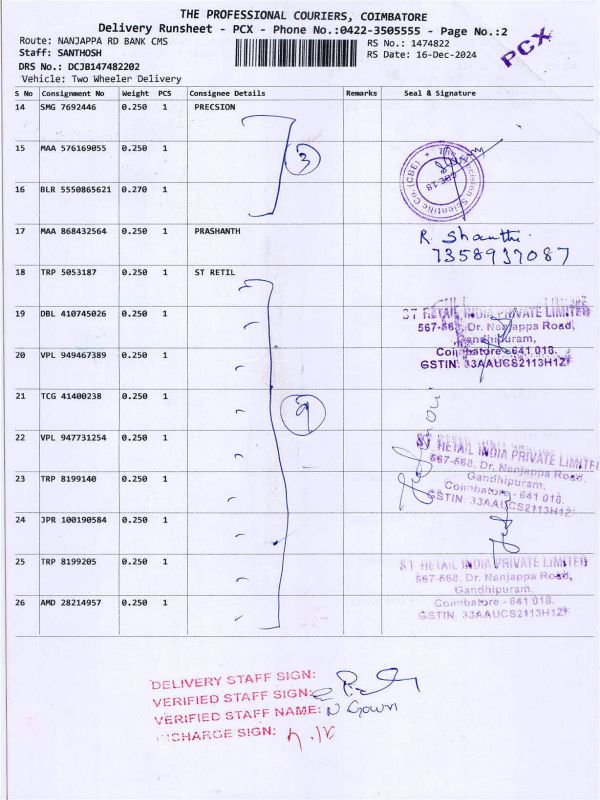 THE PROFESSIONAL COURIERS, COIMBATORE
Delivery Runsheet - PCX - Phone No.:0422-3505555 - Page No.:2
Route: NANJAPPA RD BANK CMS RS No.: 1474822
Staff: SANTHOSH RS Date: 16-Dec-2024
PCX
DRS No.: DCJB147482202
Vehicle: Two Wheeler Delivery
S No Consignment No Weight PCS Consignee Details Remarks Seal & Signature
14 SMG 7692446 0.250 1 PRECSION
15 MAA 576169055 0.250 1
3
16 BLR 5550865621 0.270 1
17 MAA 868432564 0.250 1 PRASHANTH R. Shanthi
7358937087
18 TRP 5053187 0.250 1 ST RETIL
19 DBL 410745026 0.250 1 ST RETAIL INDIA PRIVATE LIMITED
567-568, Dr. Nanjappa Road,
Gandhipuram,
20 VPL 949467389 0.250 1 Coimbatore - 641 018.
GSTIN: 33AAUCS2113H1Z
21 TCG 41400238 0.250 1
9
22 VPL 947731254 0.250 1 ST RETAIL INDIA PRIVATE LIMITED
567-568, Dr. Nanjappa Road,
23 TRP 8199140 0.250 1 Gandhipuram,
Coimbatore - 641 018.
GSTIN: 33AAUCS2113H1Z
24 JPR 100190584 0.250 1
25 TRP 8199205 0.250 1 ST RETAIL INDIA PRIVATE LIMITED
567-568, Dr. Nanjappa Road,
Gandhipuram,
26 AMD 28214957 0.250 1 Coimbatore - 641 018.
GSTIN: 33AAUCS2113H1Z
DELIVERY STAFF SIGN:
VERIFIED STAFF SIGN:
VERIFIED STAFF NAME: N Gowri
INCHARGE SIGN: